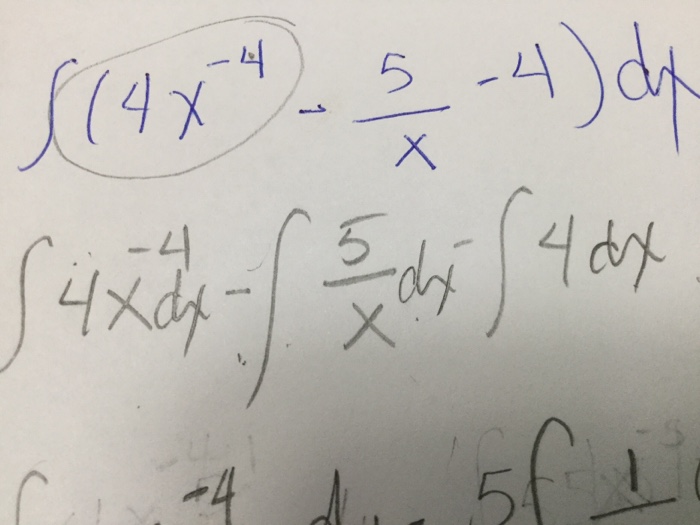 ∫(4x⁻⁴ - 5/x - 4)dx
∫4x⁻⁴dx - ∫5/x dx - ∫4dx
∫ x⁻⁴ d - 5∫1